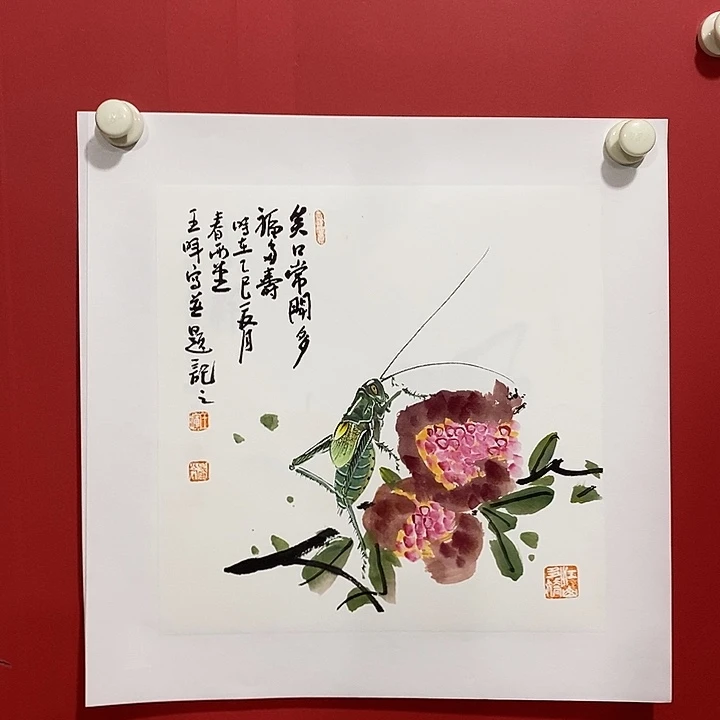 笑口常開多
福多壽
時在乙巳夏月
春雨草堂
王暉寫並題記之